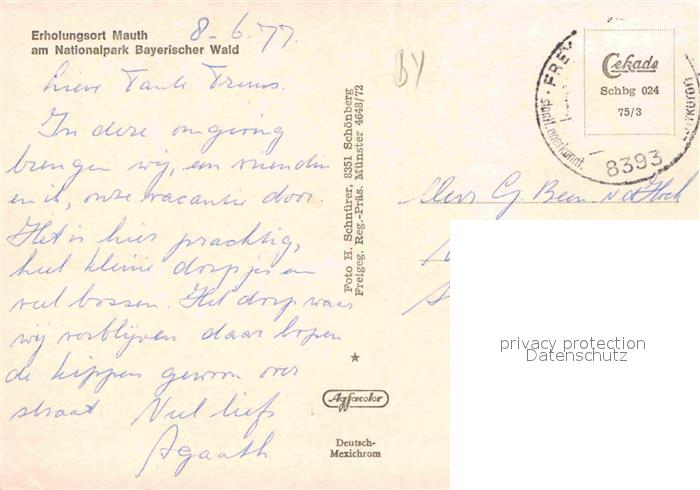 Erholungsort Mauth
am Nationalpark Bayerischer Wald
8-6-77.
Lieve Tante Truus.
In deze omgeving
brengen wij, een vriendin
en ik, onze vacantie door.
Het is hier prachtig,
heel kleine dorpjes en
veel bossen. Het dorp waar
wij verblijven daar lopen
de kippen gewoon over
straat. Veel liefs
Agaath
Foto H. Schnürer, 8351 Schönberg
Freigeg. Reg.-Präs. Münster 4643/72
Agfacolor
Deutsch-
Mexichrom
BY
Cekade
Schbg 024
75/3
FREY
8393
Mevr G Been
privacy protection
Datenschutz